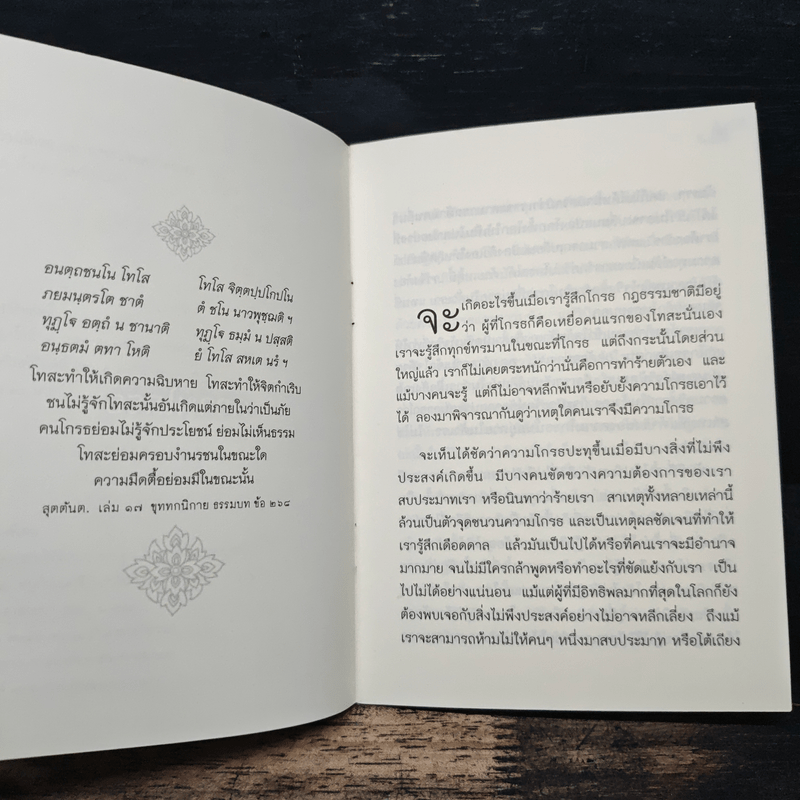 อนตฺถชนโน โทโส
ภยมนฺตรโต ชาตํ
ทุฏฺโฐ อตฺถํ น ชานาติ
อนฺธตมํ ตทา โหติ
โทโส จิตฺตปฺปโกปโน
ตํ ชโน นาวพุชฺฌติ ฯ
ทุฏฺโฐ ธมฺมํ น ปสฺสติ
ยํ โทโส สหเต นรํ ฯ
โทสะทำให้เกิดความฉิบหาย โทสะทำให้จิตกำเริบ
ชนไม่รู้จักโทสะนั้นอันเกิดแต่ภายในว่าเป็นภัย
คนโกรธย่อมไม่รู้จักประโยชน์ ย่อมไม่เห็นธรรม
โทสะย่อมครอบงำนรชนในขณะใด
ความมืดตื้อย่อมมีในขณะนั้น
สุตตันต. เล่ม ๑๗ ขุททกนิกาย ธรรมบท ข้อ ๒๖๘
จะเกิดอะไรขึ้นเมื่อเรารู้สึกโกรธ กฎธรรมชาติมีอยู่
ว่า ผู้ที่โกรธก็คือเหยื่อคนแรกของโทสะนั่นเอง
เราจะรู้สึกทุกข์ทรมานในขณะที่โกรธ แต่ถึงกระนั้นโดยส่วน
ใหญ่แล้ว เราก็ไม่เคยตระหนักว่านั่นคือการทำร้ายตัวเอง และ
แม้บางคนจะรู้ แต่ก็ไม่อาจหลีกพ้นหรือยับยั้งความโกรธเอาไว้
ได้ ลองมาพิจารณากันดูว่าเหตุใดคนเราจึงมีความโกรธ
จะเห็นได้ชัดว่าความโกรธปะทุขึ้นเมื่อมีบางสิ่งที่ไม่พึง
ประสงค์เกิดขึ้น มีบางคนขัดขวางความต้องการของเรา
สบประมาทเรา หรือนินทาว่าร้ายเรา สาเหตุทั้งหลายเหล่านี้
ล้วนเป็นตัวจุดชนวนความโกรธ และเป็นเหตุผลชัดเจนที่ทำให้
เรารู้สึกเดือดดาล แล้วมันเป็นไปได้หรือที่คนเราจะมีอำนาจ
มากมาย จนไม่มีใครกล้าพูดหรือทำอะไรที่ขัดแย้งกับเรา เป็น
ไปไม่ได้อย่างแน่นอน แม้แต่ผู้ที่มีอิทธิพลมากที่สุดในโลกก็ยัง
ต้องพบเจอกับสิ่งไม่พึงประสงค์อย่างไม่อาจหลีกเลี่ยง ถึงแม้
เราจะสามารถห้ามไม่ให้คนๆ หนึ่งมาสบประมาท หรือโต้เถียง